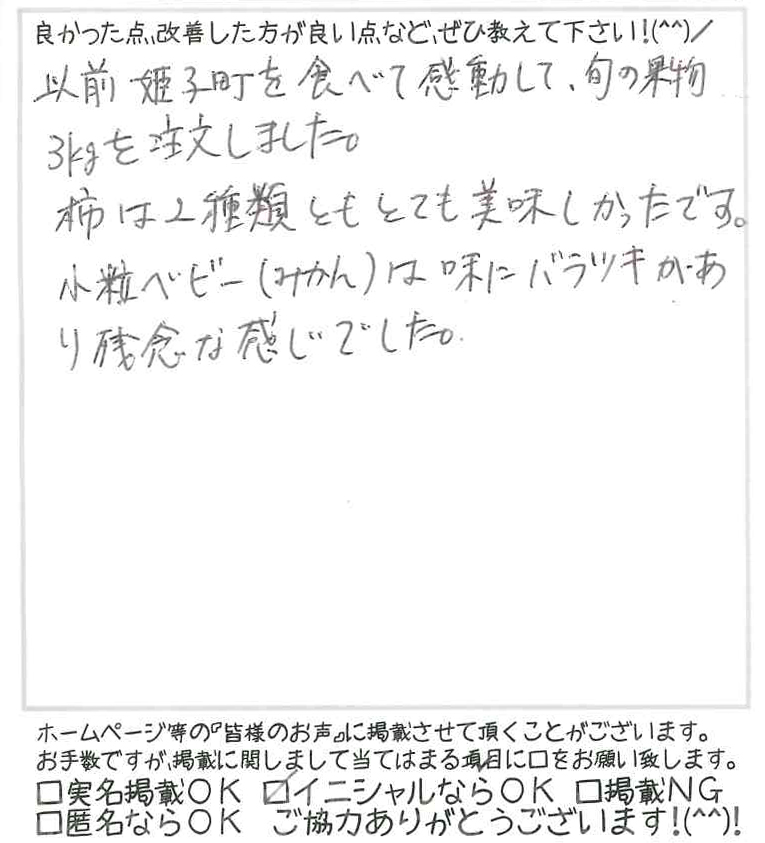 良かった点、改善した方が良い点など、ぜひ教えて下さい!(^^)/
以前 姫子町を食べて感動して、旬の果物
3kgを注文しました。
柿は2種類ともとても美味しかったです。
小粒ベビー(みかん)は味にバラツキがあ
り残念な感じでした。
ホームページ等の『皆様のお声』に掲載させて頂くことがございます。
お手数ですが、掲載に関しまして当てはまる項目に□をお願い致します。
□実名掲載OK ☑イニシャルならOK □掲載NG
□匿名ならOK ご協力ありがとうございます!(^^)!